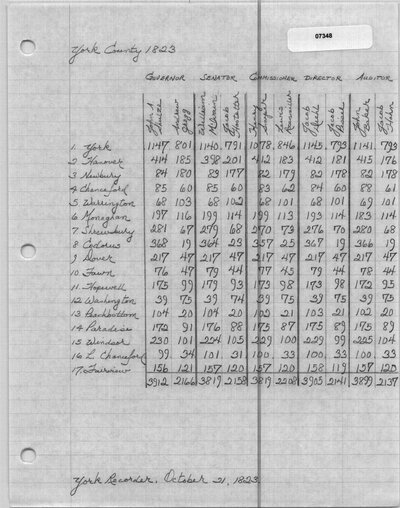 07348
York County 1823
GOVERNOR SENATOR COMMISSIONER DIRECTOR AUDITOR
John A. Shulze Andrew Gregg William McIlvain Jacob Henry Louis Jacob Jacob John Jacob
1. York 1147 801 1140 791 1078 846 1145 793 1141 793
2 Hanover 414 185 398 201 412 183 412 181 415 176
3 Newbury 84 180 83 177 82 179 82 178 82 178
4 Chanceford 85 60 85 60 83 62 84 60 88 61
5 Warrington 68 103 68 102 68 101 68 101 69 101
6 Monaghan 197 116 199 114 199 113 193 114 183 114
7 Shrewsbury 281 67 279 68 270 73 276 70 280 68
8 Codorus 368 19 364 23 357 25 367 19 366 19
9 Dover 217 47 217 47 217 47 217 47 217 47
10 Fawn 76 47 79 44 77 45 79 44 78 44
11 Hopewell 175 99 179 93 173 98 173 98 172 95
12 Washington 39 75 39 74 39 75 39 75 39 75
13 Peachbottom 104 20 104 20 102 21 103 21 102 20
14 Paradise 172 91 176 88 175 87 175 89 175 89
15 Windsor 230 101 224 105 229 100 229 99 225 104
16 L. Chanceford 99 34 101 31 100 33 100 33 100 33
17 Fairview 156 121 157 120 157 120 158 119 157 120
3912 2166 3819 2158 3819 2208 3905 2141 3899 2137
York Recorder, October 21, 1823